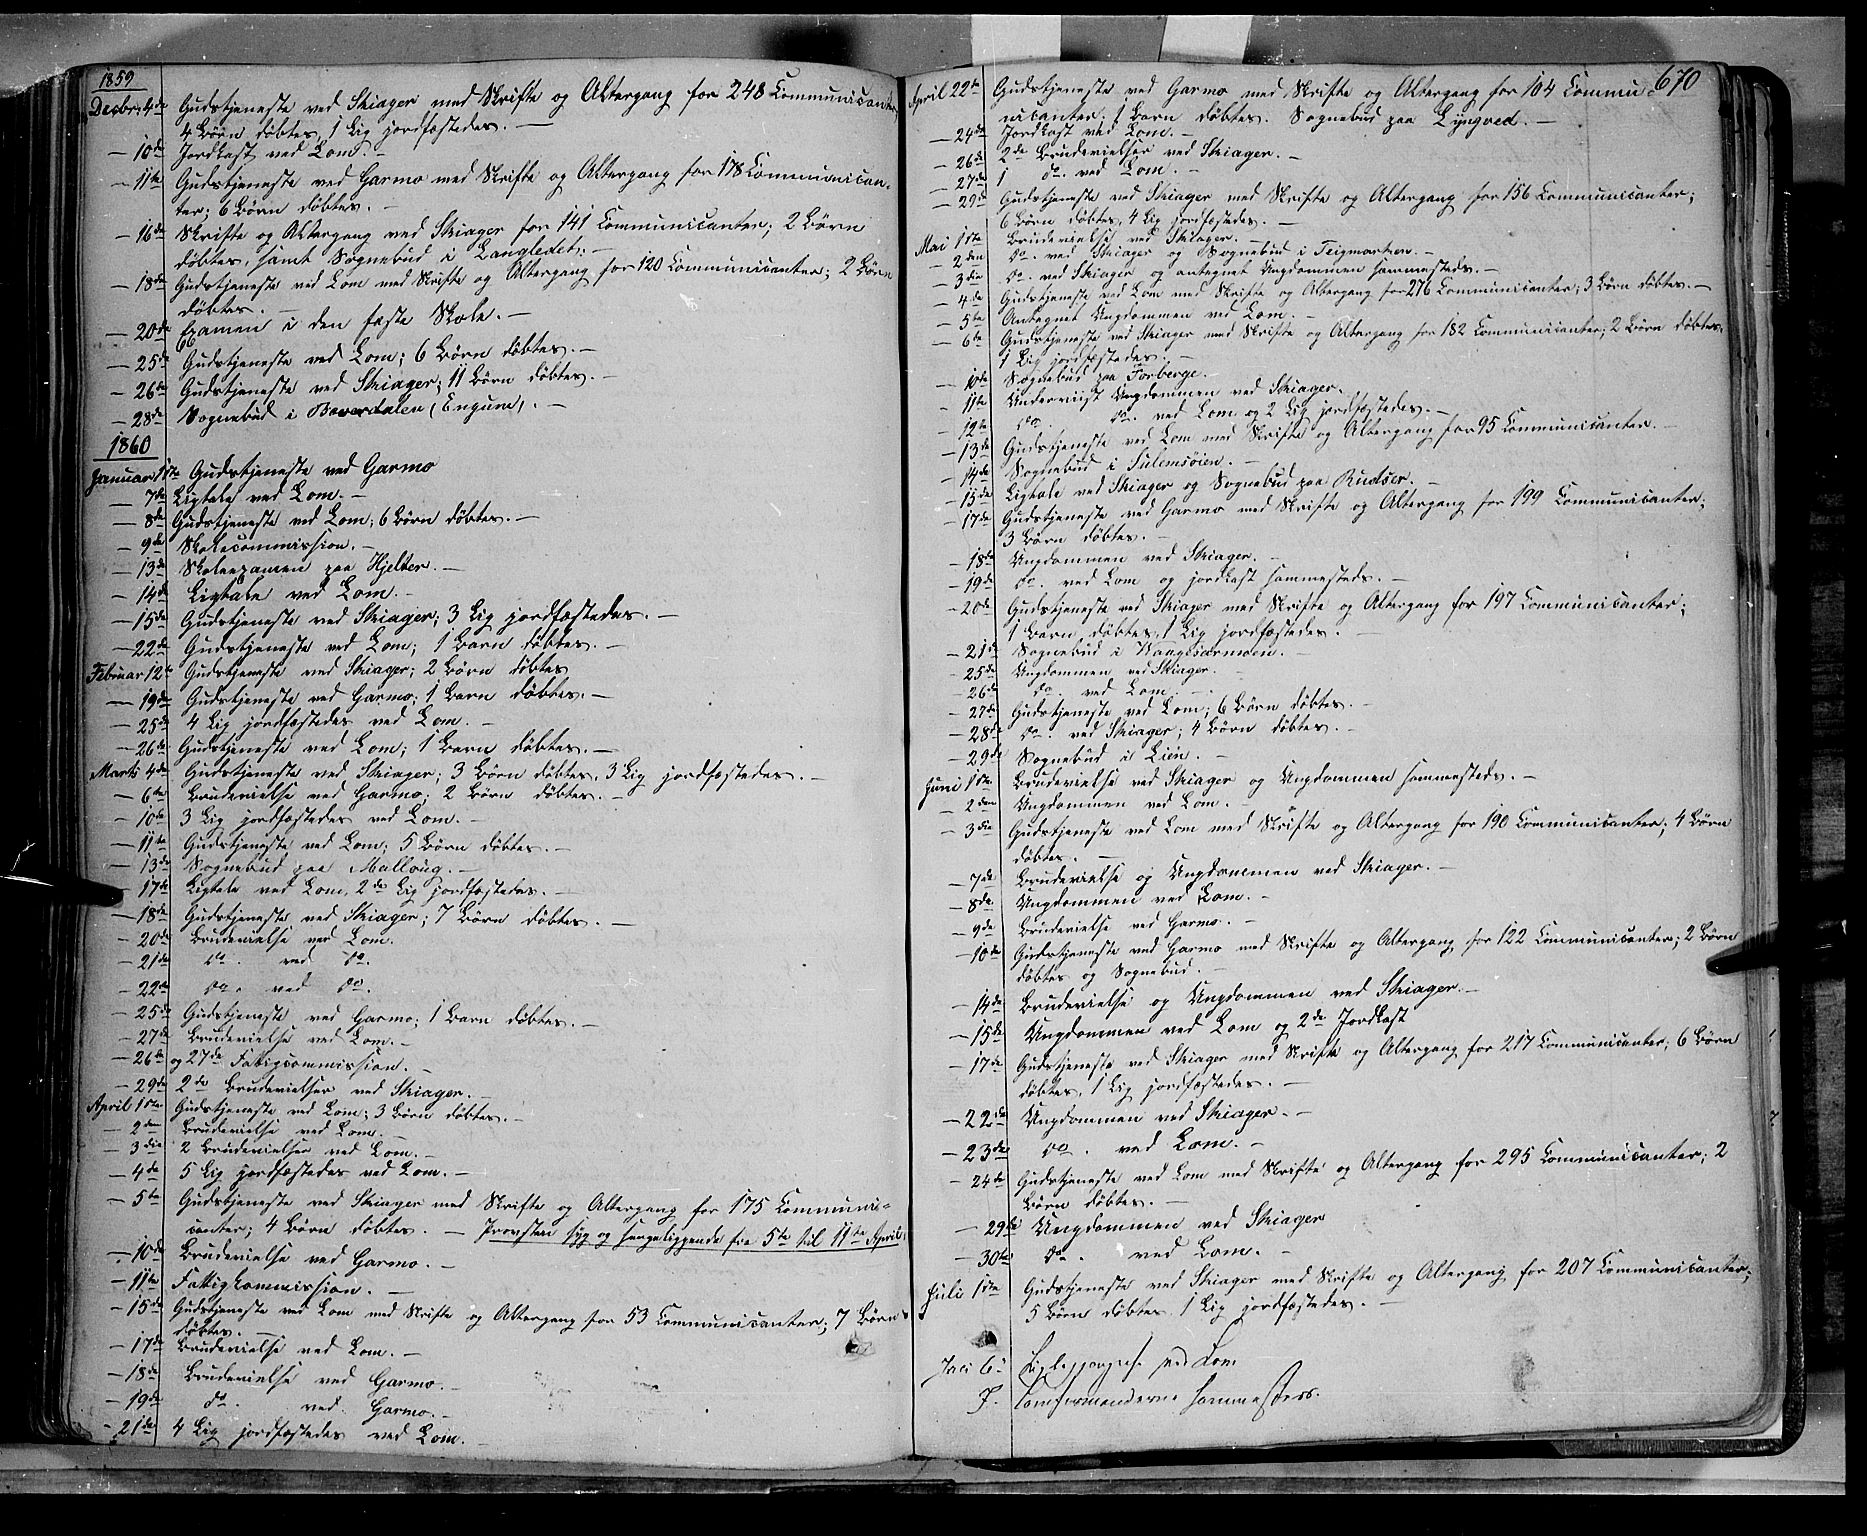 1859
Decbr: 4de Gudstjeneste ved Skiager med Skrifte og Altergang for 248 Communicanter,
4 Børn døbtes, 1 Lig jordfæstedes. —
— 10de Jordkast ved Lom. —
— 11te Gudstjeneste ved Garmo med Skrifte og Altergang for 178 Communican-
ter; 6 Børn døbtes. —
— 16de Skrifte og Altergang ved Skiager for 141 Communicanter; 2 Børn
døbtes, samt Sognebud i Langledet. —
— 18de Gudstjeneste ved Lom med Skrifte og Altergang for 120 Communicanter; 2 Børn
døbtes. —
— 20de Examen i den faste Skole. —
— 25de Gudstjeneste ved Lom; 6 Børn døbtes. —
— 26de Gudstjeneste ved Skiager; 11 Børn døbtes. —
— 28de Sognebud i Bæverdalen (Engum). —
1860
Januar 1ste Gudstjeneste ved Garmo
— 7de Ligtale ved Lom. —
— 8de Gudstjeneste ved Lom; 6 Børn døbtes. —
— 9de Skolecommission. —
— 13de Skoleexamen paa Hjelter. —
— 14de Ligtale ved Lom. —
— 15de Gudstjeneste ved Skiager; 3 Lig jordfæstedes. —
— 22de Gudstjeneste ved Lom; 1 Barn døbtes. —
Februar 12te Gudstjeneste ved Skiager; 2 Børn døbtes
— 19de Gudstjeneste ved Garmo; 1 Barn døbtes. —
— 25de 4 Lig jordfæstedes ved Lom. —
— 26de Gudstjeneste ved Lom; 1 Barn døbtes. —
Marts 4de Gudstjeneste ved Skiager; 3 Børn døbtes, 3 Lig jordfæstedes. —
— 6te Brudevielse ved Garmo; 2 Børn døbtes. —
— 10de 3 Lig jordfæstedes ved Lom. —
— 11te Gudstjeneste ved Lom; 5 Børn døbtes. —
— 13de Sognebud paa Mulloug. —
— 17de Ligtale ved Lom, 2de Lig jordfæstedes. —
— 18de Gudstjeneste ved Skiager; 7 Børn døbtes. —
— 20de Brudevielse ved Lom.
— 21de do. ved do.
— 22de do. ved do.
— 25de Gudstjeneste ved Garmo; 1 Barn døbtes. —
— 27de Brudevielse ved Lom. —
— 26de og 27de Fattigcommission. —
— 29de 2de Brudevielser ved Skiager. —
April 1ste Gudstjeneste ved Lom; 3 Børn døbtes. —
— 2den Brudevielse ved Lom. —
— 3die 2 Brudevielser ved Lom. —
— 4de 5 Lig jordfæstedes ved Lom. —
— 5te Gudstjeneste ved Skiager med Skrifte og Altergang for 175 Communi-
canter; 4 Børn døbtes. — Provsten syg og sengeliggende fra 5te til 11te April.
— 10de Brudevielse ved Garmo. —
— 11te Fattigkommission. —
— 15de Gudstjeneste ved Lom med Skrifte og Altergang for 53 Communicanter; 7 Børn
døbtes. —
— 17de Brudevielse ved Lom. —
— 18de Brudevielse ved Garmo. —
— 19de do. ved Garmo. —
— 21de 4 Lig jordfæstedes ved Lom. —
670
April 22de Gudstjeneste ved Garmo med Skrifte og Altergang for 104 Commu-
nicanter; 1 Barn døbtes. Sognebud paa Lyngved. —
— 24de Jordkast ved Lom. —
— 26de 2de Brudevielser ved Skiager. —
— 27de 1 do. ved Lom. —
— 29de Gudstjeneste ved Skiager med Skrifte og Altergang for 156 Communicanter;
6 Børn døbtes, 4 Lig jordfæstedes. —
Mai 1ste Brudevielse ved Skiager. —
— 2den do. ved Skiager og Sognebud i Teigmarken. —
— 3die do. ved Skiager og antegnet Ungdommen sammesteds. —
— 4de Gudstjeneste ved Lom med Skrifte og Altergang for 276 Communicanter; 3 Børn døbtes. —
— 5te Antegnet Ungdommen ved Lom. —
— 6te Gudstjeneste ved Skiager med Skrifte og Altergang for 182 Communicanter; 2 Børn døbtes,
1 Lig jordfæstedes. —
— 10de Sognebud paa Forberge. —
— 11te Underviist Ungdommen ved Skiager.
— 12te do. do. ved Lom og 2 Lig jordfæstedes. —
— 13de Gudstjeneste ved Lom med Skrifte og Altergang for 95 Communicanter. —
— 14de Sognebud i Sulemsøien. —
— 15de Ligtale ved Skiager og Sognebud paa Rudser. —
— 17de Gudstjeneste ved Garmo med Skrifte og Altergang for 199 Communicanter;
3 Børn døbtes. —
— 18de Ungdommen ved Skiager. —
— 19de do. ved Lom og jordkast sammesteds. —
— 20de Gudstjeneste ved Skiager med Skrifte og Altergang for 197 Communicanter;
1 Barn døbtes, 1 Lig jordfæstedes. —
— 21de Sognebud i
— 25de Ungdommen ved Skiager. —
— 26de do. ved Lom. —
— 27de Gudstjeneste ved Lom; 6 Børn døbtes. —
— 28de do. ved Skiager; 4 Børn døbtes. —
— 29de Sognebud i Lien. —
Juni 1ste Brudevielse ved Skiager og Ungdommen sammesteds. —
— 2den Ungdommen ved Lom. —
— 3die Gudstjeneste ved Lom med Skrifte og Altergang for 190 Communicanter; 4 Børn
døbtes. —
— 7de Brudevielse og Ungdommen ved Skiager. —
— 8de Ungdommen ved Lom. —
— 9de Brudevielse ved Garmo. —
— 10de Gudstjeneste ved Garmo med Skrifte og Altergang for 122 Communicanter; 2 Børn
døbtes og Sognebud. —
— 14de Brudevielse og Ungdommen ved Skiager. —
— 15de Ungdommen ved Lom og 2de Jordkast
— 17de Gudstjeneste ved Skiager med Skrifte og Altergang for 217 Communicanter; 6 Børn
døbtes, 1 Lig jordfæstedes. —
— 22de Ungdommen ved Skiager. —
— 23de do. ved Lom. —
— 24de Gudstjeneste ved Lom med Skrifte og Altergang for 295 Communicanter; 2
Børn døbtes. —
— 29de Ungdommen ved Skiager
— 30te do. ved Lom. —
Juli 1ste Gudstjeneste ved Skiager med Skrifte og Altergang for 207 Communicanter;
5 Børn døbtes, 1 Lig jordfæstedes. —
Juli 6. ved Lom
7. Confirmanderne sammesteds.